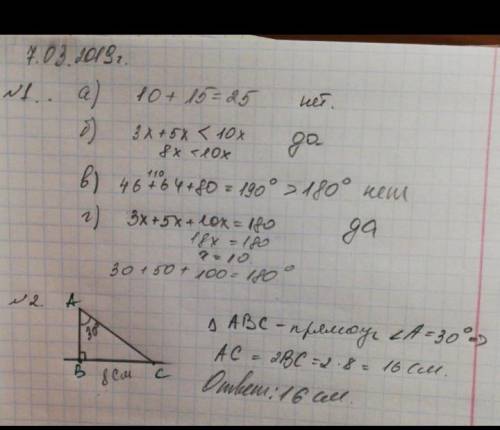 7.03.2019г.
№1.. а) 10 + 15 = 25 нет.
б) 3x + 5x < 10x да
8x < 10x
110
в) 46 + 64 + 80 = 190° > 180° нет
г) 3x + 5x + 10x = 180 да
18x = 180
x = 10
30 + 50 + 100 = 180°
№2
A
30
B C
8 см
Δ ABC - прямоуг ∠A = 30° ⇒
AC = 2BC = 2·8 = 16 см.
Ответ: 16 см.